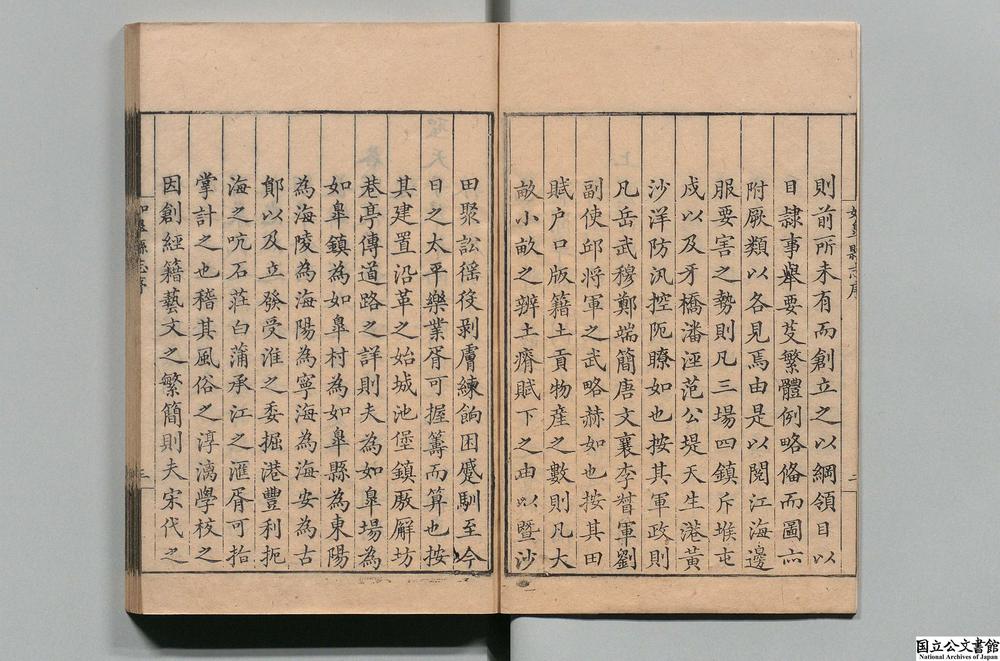 則前所未有而創立之以綱領目以
目隸事舉要芟繁體例略俻而圖亦
附厥類以各見焉由是以閱江海邊
服要害之勢則凡三場四鎮斥堠屯
戍以及牙橋潘涇范公堤天生港黄
沙洋防汛控阨瞭如也按其軍政則
凡岳武穆鄭端簡唐文襄李督軍劉
副使邱将軍之武略赫如也按其田
賦户口版籍土貢物産之數則凡大
畝小畝之辨土瘠賦下之由以暨沙
田聚訟徭役剥膚練餉困蹙馴至今
日之太平樂業胥可握籌而算也按
其建置沿革之始城池堡鎮廒廨坊
巷亭傳道路之詳則夫為如臯場為
如臯鎮為如臯村為如臯縣為東陽
為海陵為海陽為寧海為海安為古
鄖以及立發受淮之委掘港豐利扼
海之吭石莊白蒲承江之滙胥可指
掌計之也稽其風俗之淳漓學校之
因創經籍藝文之繁簡則夫宋代之
如臯縣志序
二
如臯縣志序
三
国立公文書館
National Archives of Japan